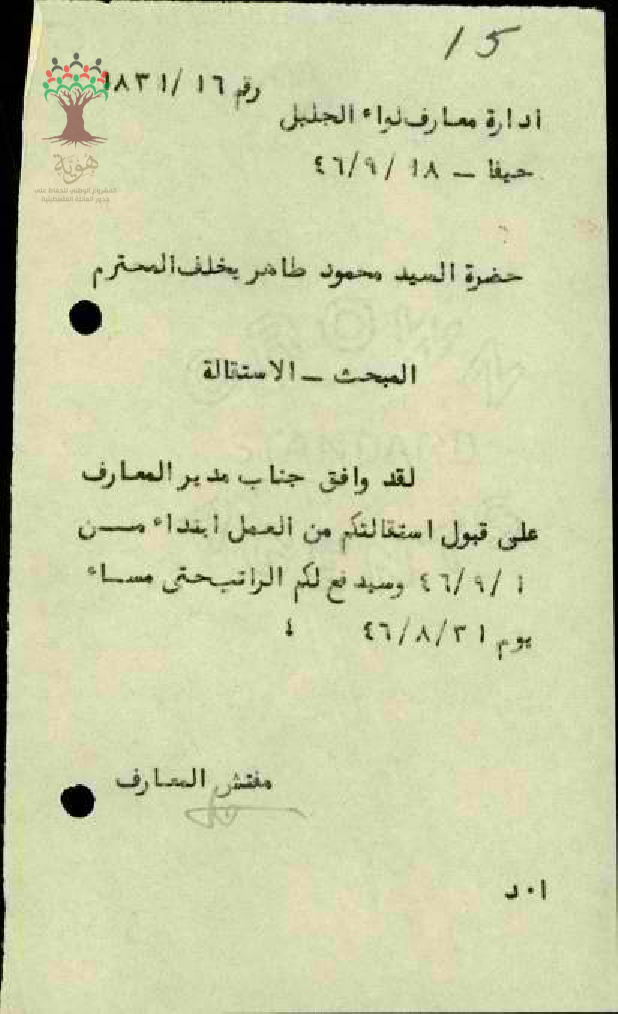 15
رقم ١٦ /١٨٣١
ادارة معارف لواء الجليل
حيفا - ١٨ /٩ /٤٦
هوية
المشروع الوطني للحفاظ على
جذور العائلة الفلسطينية
حضرة السيد محمود طاهر يخلف المحترم
المبحث - الاستقالة
لقد وافق جناب مدير المعارف
على قبول استقالتكم من العمل ابتداء مـــن
١ /٤٦/٩ وسيدفع لكم الراتب حتى مساء
يوم ٤٦/٨/٣١
مفتش المعارف
ا٠د
STANDARD